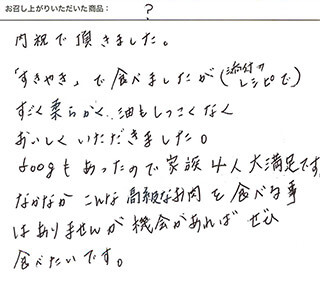 お召し上がりいただいた商品： ？
内祝で頂きました。
「すきやき」で食べましたが（添付のレシピで）
すごく柔らかく、油もしつこくなく
おいしくいただきました。
600gもあったので家族4人大満足です
なかなかこんな高級なお肉を食べる事
はありませんが機会があればぜひ
食べたいです。